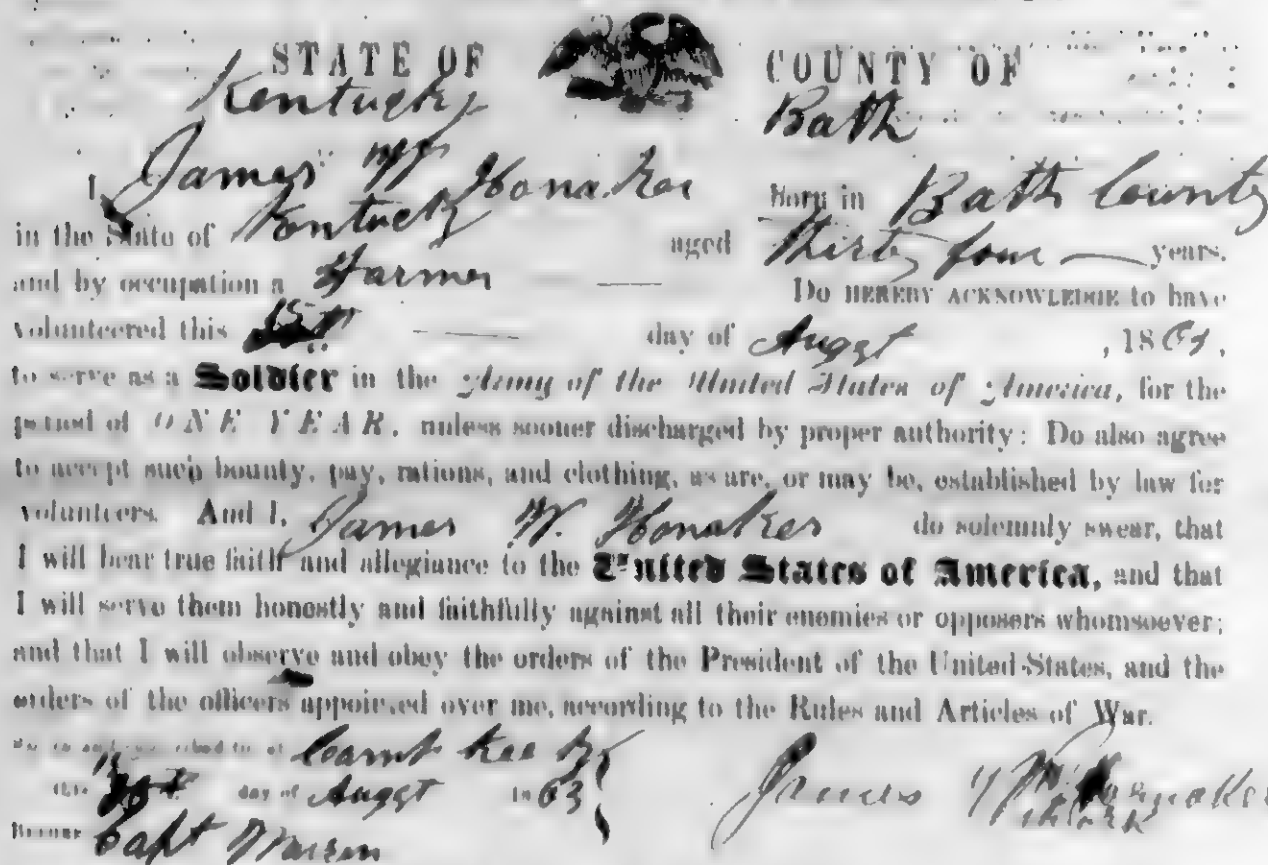 STATE OF COUNTY OF
Kentucky Bath
I, James W Honaker Born in Bath County
in the State of Kentucky aged thirty four years.
and by occupation a Farmer Do HEREBY ACKNOWLEDGE to have
volunteered this day of Augst , 186
to serve as a Soldier in the Army of the United States of America, for the
period of ONE YEAR, unless sooner discharged by proper authority: Do also agree
to accept such bounty, pay, rations, and clothing, as are, or may be, established by law for
volunteers. And I, James W. Honaker do solemnly swear, that
I will bear true faith and allegiance to the United States of America, and that
I will serve them honestly and faithfully against all their enemies or opposers whomsoever;
and that I will observe and obey the orders of the President of the United States, and the
orders of the officers appointed over me, according to the Rules and Articles of War.
Sworn and subscribed to, at
this day of Augst 1863
James W Honaker
BEFORE Capt Warren